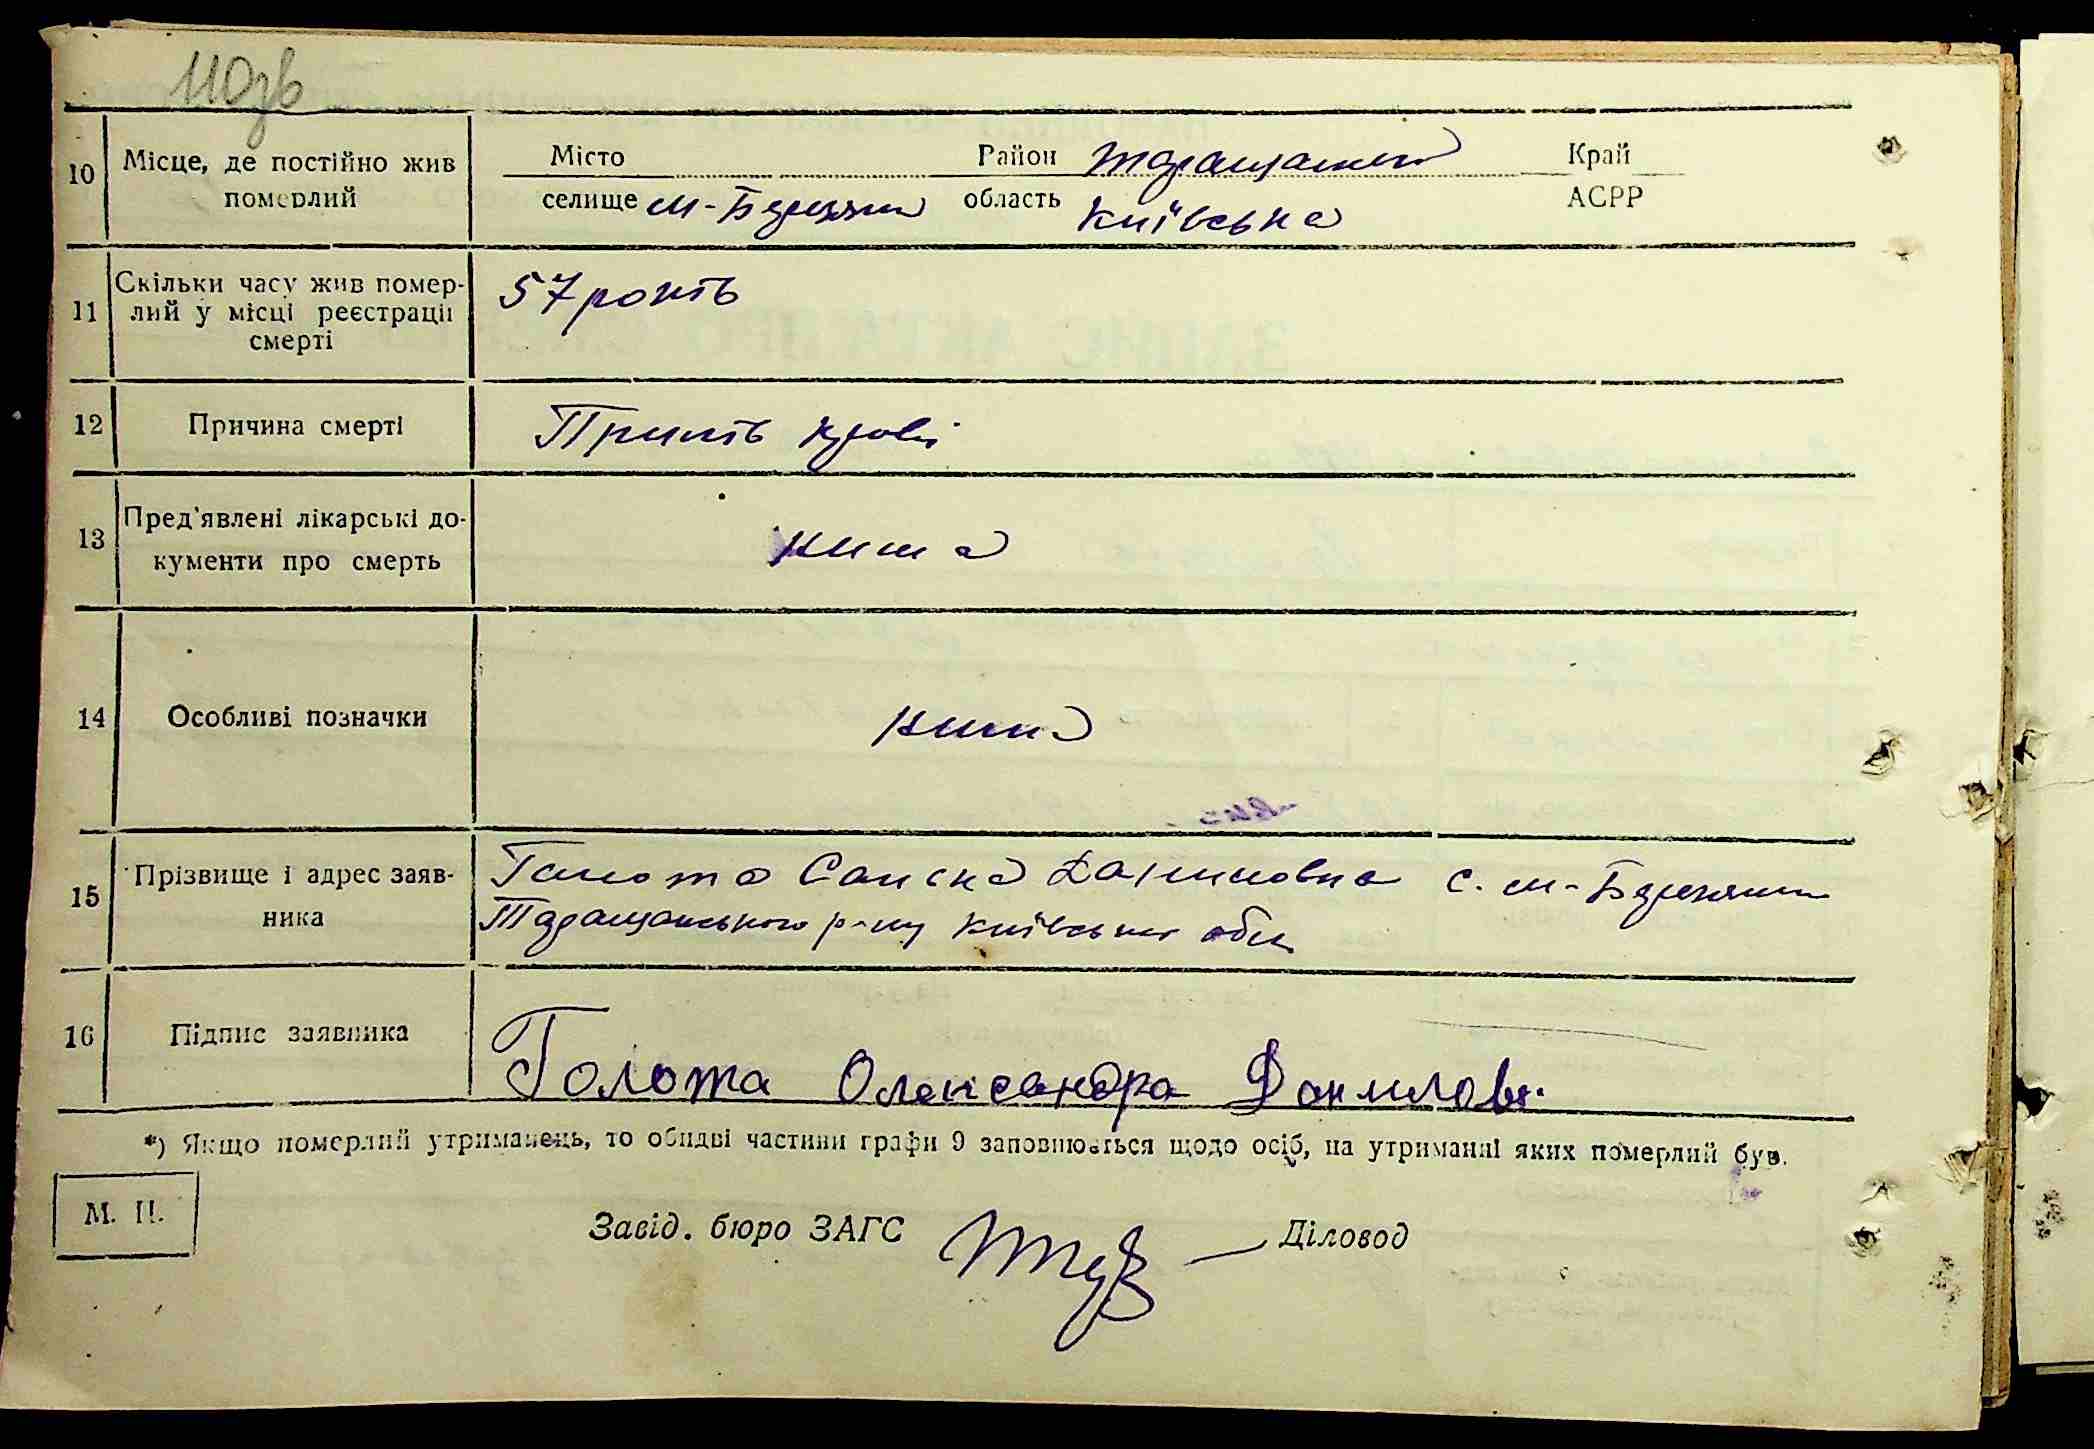 110зв
10 Місце, де постійно жив померлий
Місто Район Таращанський Край
селище м-Березянка область Київська АСРР
11 Скільки часу жив померлий у місці реєстрації смерті
57 років
12 Причина смерті
Прилів крові
13 Пред'явлені лікарські документи про смерть
нима
14 Особливі позначки
нима
15 Прізвище і адрес заявника
Голота Даниловна с. м-Березянка
Таращанського р-ну Київської обл
16 Підпис заявника
Голота Олександра Данилов.
*) Якщо померлий утриманець, то обидві частини графи 9 заповнюється щодо осіб, на утриманні яких померлий був.
М. П.
Завід. бюро ЗАГС Діловод